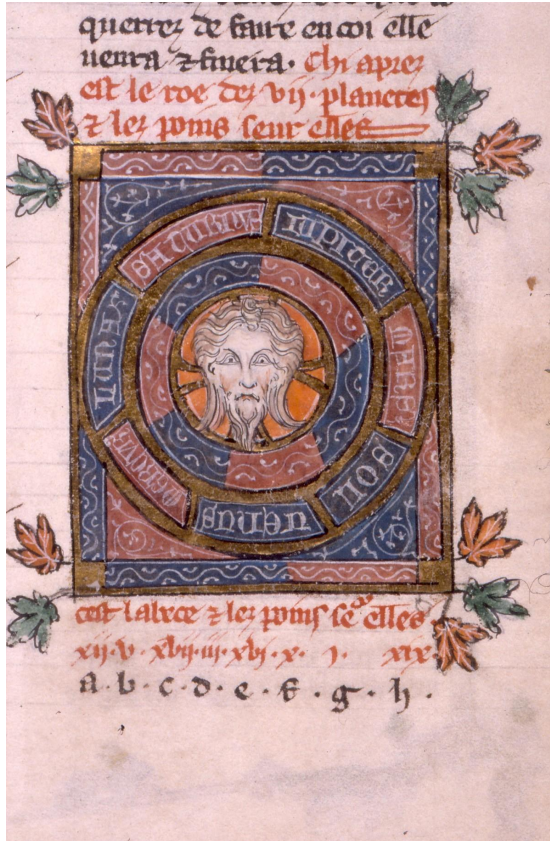 querrez de faire en coi elle
uenra ⁊ finera. Chi aprez
est le roe dez vij. planetes
⁊ lez poins seur elles
SATURNUS
IUPITER
MARS
SOL
UENUS
LUNA
cest labece ⁊ lez poins seur elles
xij. v. xvij. iij. xvj. x. j. xix
a. b. c. d. e. f. g. h.